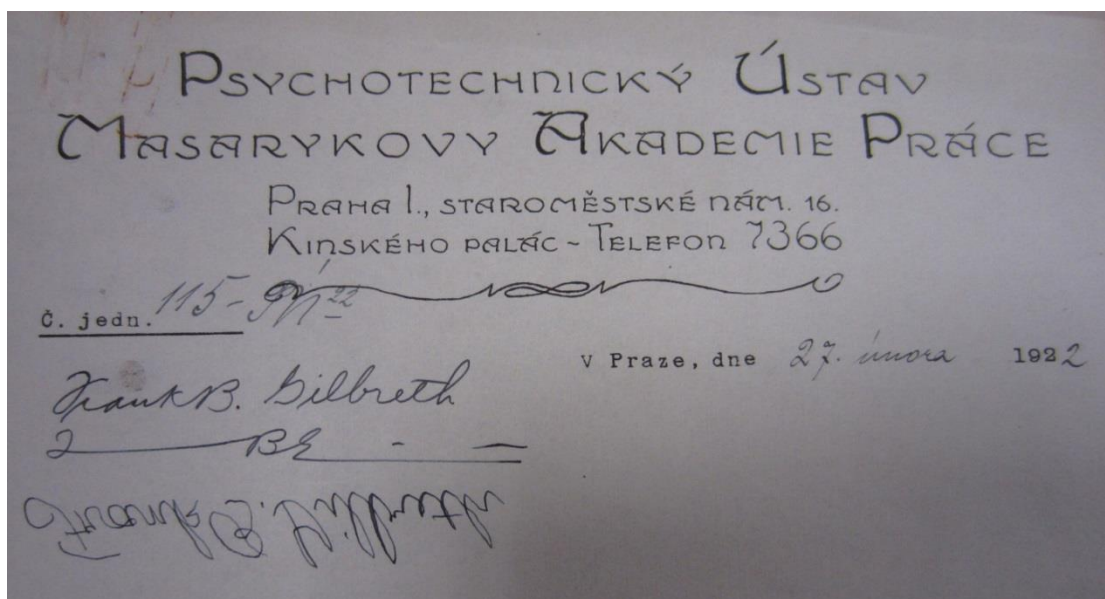 Psychotechnický Ústav
Masarykovy Akademie Práce
Praha I., staroměstské nám. 16.
Kinského palác ~ Telefon 7366
Č. jedn. 115-
V Praze, dne 27. února 1922
Frank B. Gilbreth
Frank B. Gilbreth